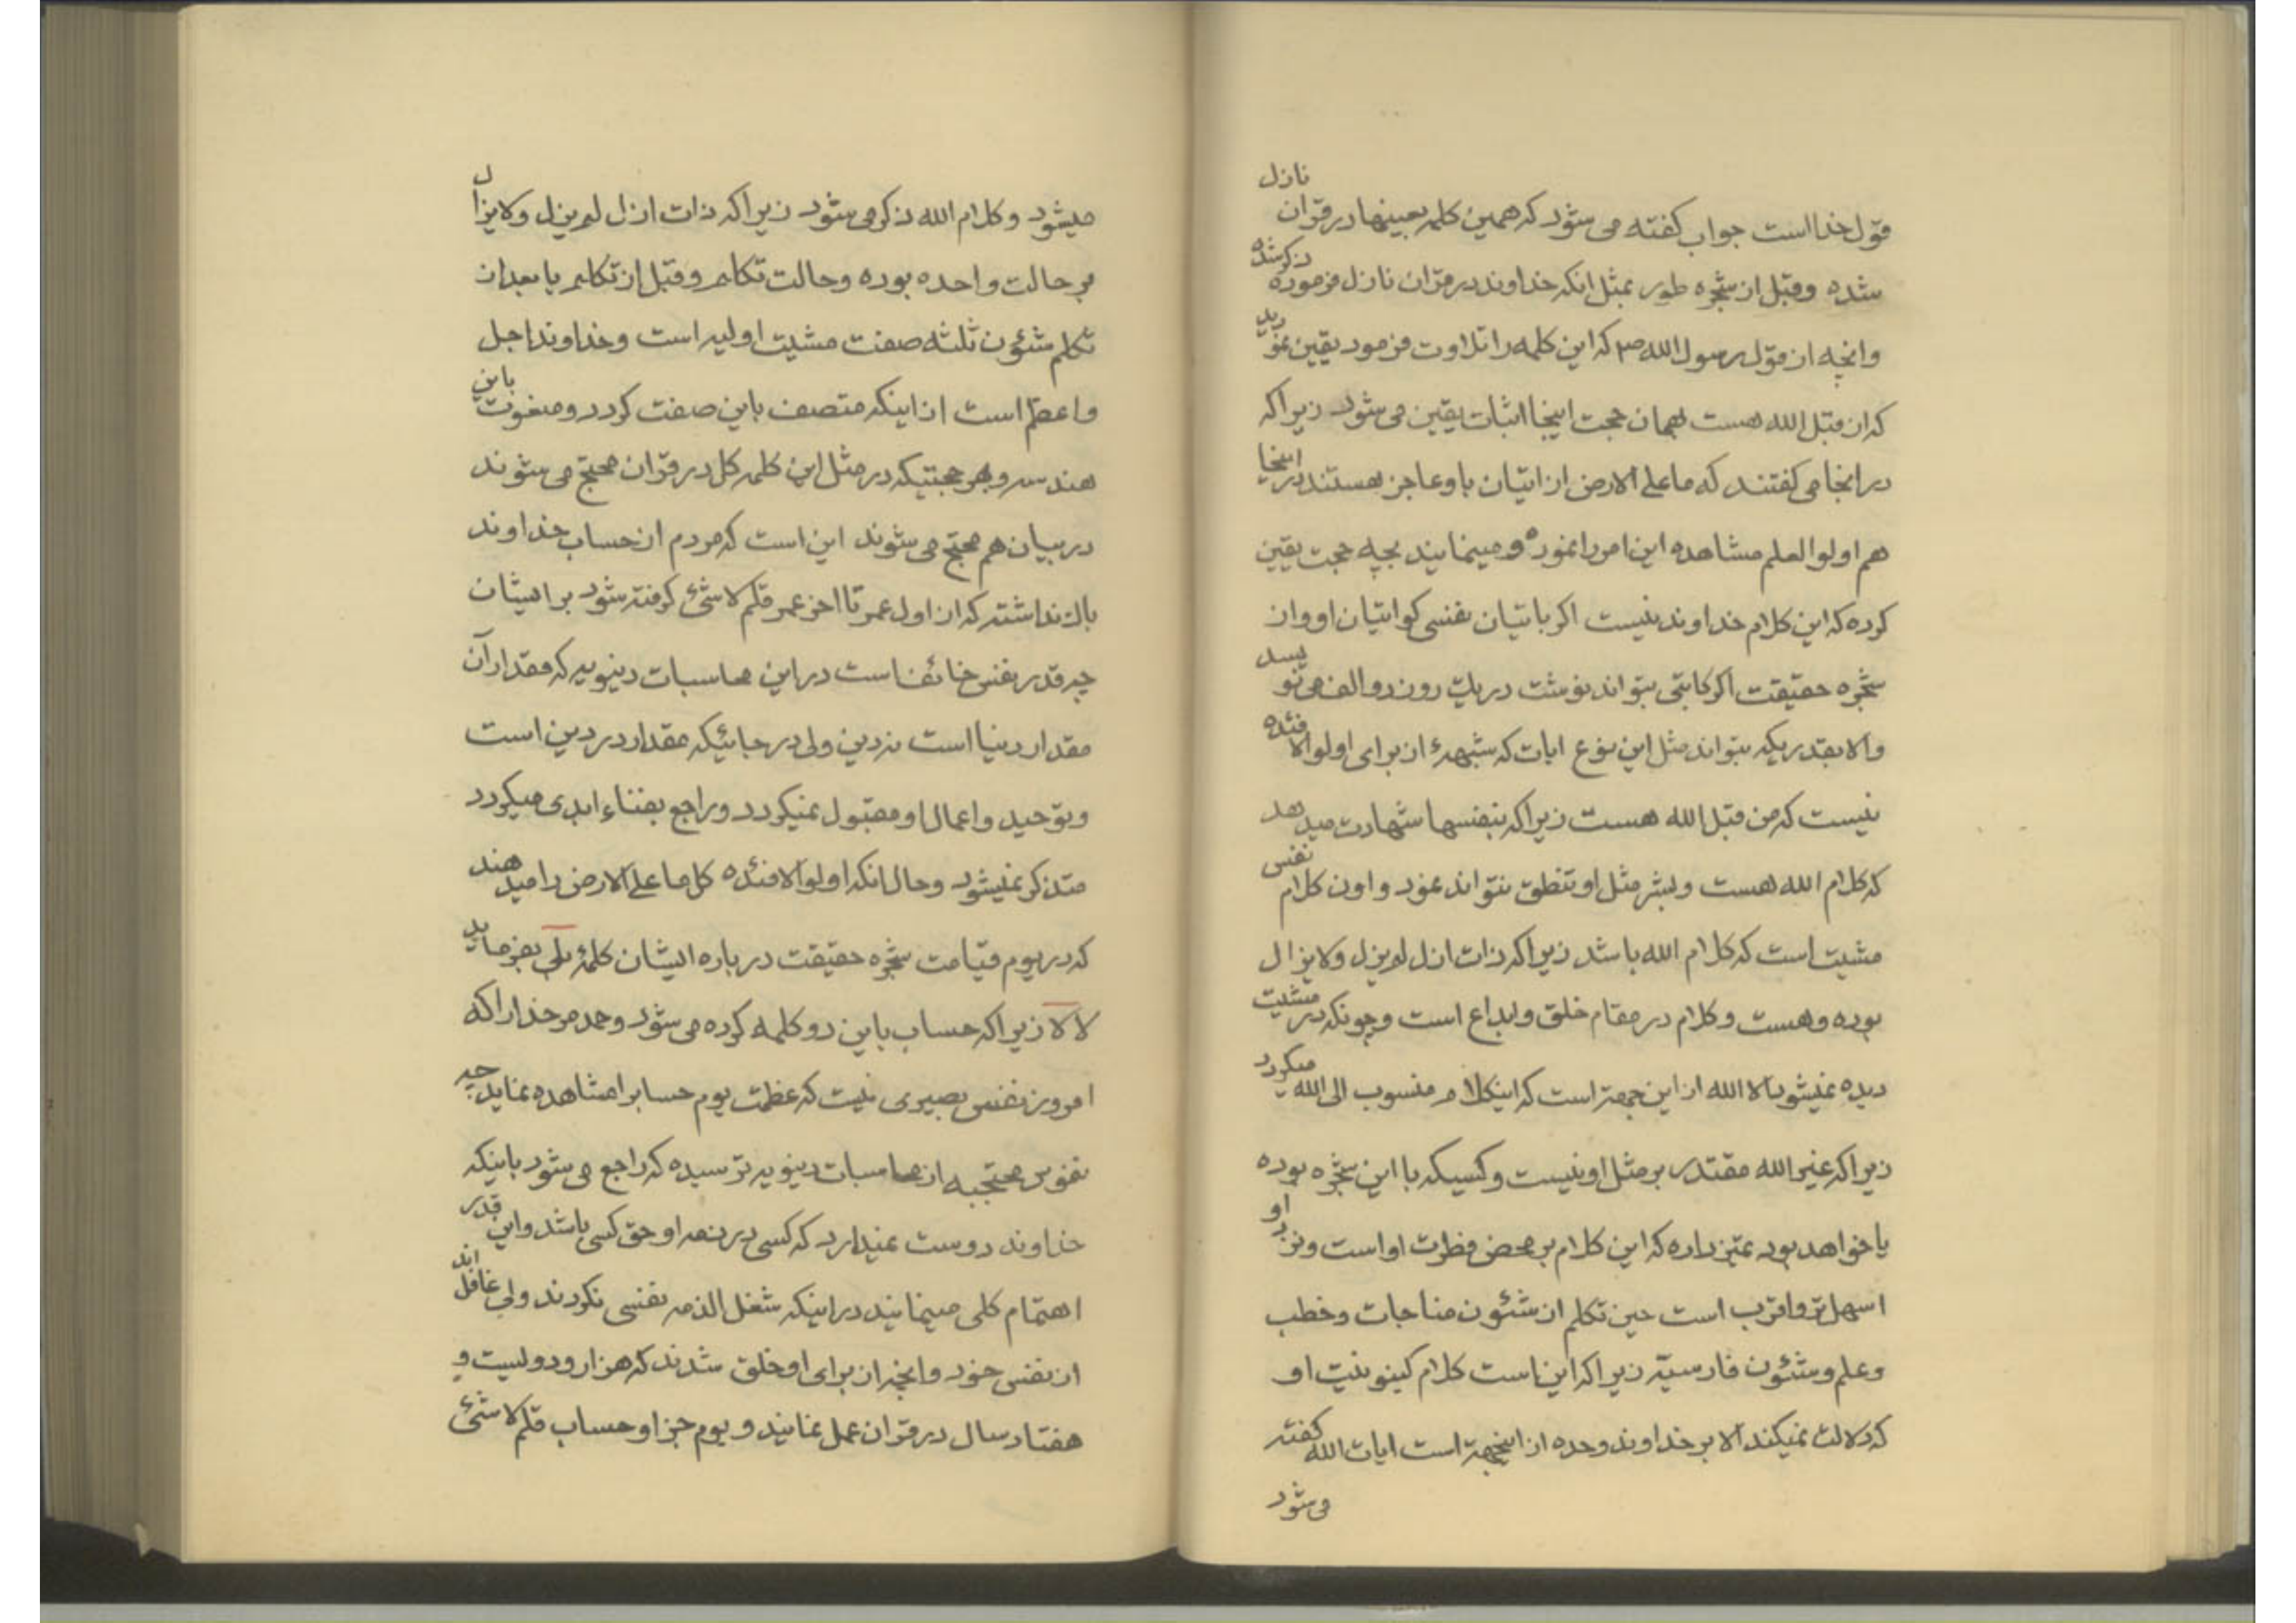 قول خدا است جواب گفته می شود که همین کلمه بعینها در قران نازل
شده وقبل از شجره طور بمثل انکه خداوند در قران نازل فرموده ذکر شده
وانچه از قول رسول الله ص که این کلمه را تلاوت فرمود یقین نمودید
که از قبل الله هست بهمان حجت اینجا اثبات یقین می شود زیرا که
در انجا می گفتند که ما علی الارض از اتیان باو عاجز هستند در اینجا
هم اولوا العلم مشاهده این امر را نموده و مینمایند بچه حجت یقین
کرده که این کلام خداوند نیست اکر باتیان نفسی کو اتیان او وان
شجره حقیقت اکر کاتبی بتواند نوشت در یک روز دو الف می نویسد
والا بقدریکه بتواند مثل این نوع ایات که شبههٔ از برای اولوا الافئده
نیست که من قبل الله هست زیرا که بنفسها شهادت میدهد
که کلام الله هست وبشر مثل او تنطق نتواند نمود و اون کلام نفس
مشیت است که کلام الله باشد زیرا که ذات ازل لم یزل ولایزال
بوده وهست وکلام در مقام خلق وابداع است وچونکه در مشیت
دیده نمیشود الا الله از این جهة است که اینکلام منسوب الی الله میکردد
زیرا که غیر الله مقتدر بر مثل او نیست وکسیکه با این شجره بوده
یا خواهد بود تمیز داده که این کلام بر محض فطرت او است ونزد او
اسهل تر واقرب است حین تکلم از شئون مناجات وخطب
وعلم وشئون فارسیّه زیرا که این است کلام کینونیت او
که دلالت نمیکند الا بر خداوند وحده از اینجهة است ایات الله گفته
می شود
میشود وکلام الله ذکر می شود زیرا که ذات ازل لم یزل ولایزال
بر حالت واحده بوده وحالت تکلم وقبل از تکلم یا بعد از
تکلم شئون ثلثه صفت مشیت اولیه است وخداوند اجل
واعظم است از اینکه متصف باین صفت کردد ومنعوت باین
هندسه وبهر حجتیکه در مثل این کلمه کل در قران محتج می شوند
در بیان هم محتج می شوند این است که مردم از حساب خداوند
باک نداشته که از اول عمر تا اخر عمر قلم لا شئ گرفته شود بر ایشان
چه قدر نفس خائف است در این محاسبات دینویه که مقدار آن
مقدار دنیا است نه دین ولی در جائیکه مقدار در دین است
وتوحید واعمال او مقبول نمیکردد وراجع بفناء ابدی میکردد
متذکر نمیشود وحال انکه اولوا الافئده کل ما علی الارض را میدهند
که در یوم قیامت شجره حقیقت در باره ایشان کلمهٔ بلی بفرماید
لا لا زیرا که حساب باین دو کلمه کرده می شود وحمد مر خدا را که
امروز نفس بصیری نیست که عظمت یوم حسابرا مشاهده نماید چه
نفوس محتجبه از محاسبات دینویه ترسیده که راجع می شود باینکه
خداوند دوست نمیدارد که کسی در ذمه او حق کسی باشد واین قدر
اهتمام کلی مینمایند در اینکه شغل الذمه نفسی نکردند ولی غافل اند
از نفس خود وانچه از برای او خلق شدند که هزار و دویست و
هفتاد سال در قران عمل نمایند و یوم جزا وحساب قلم لا شئ